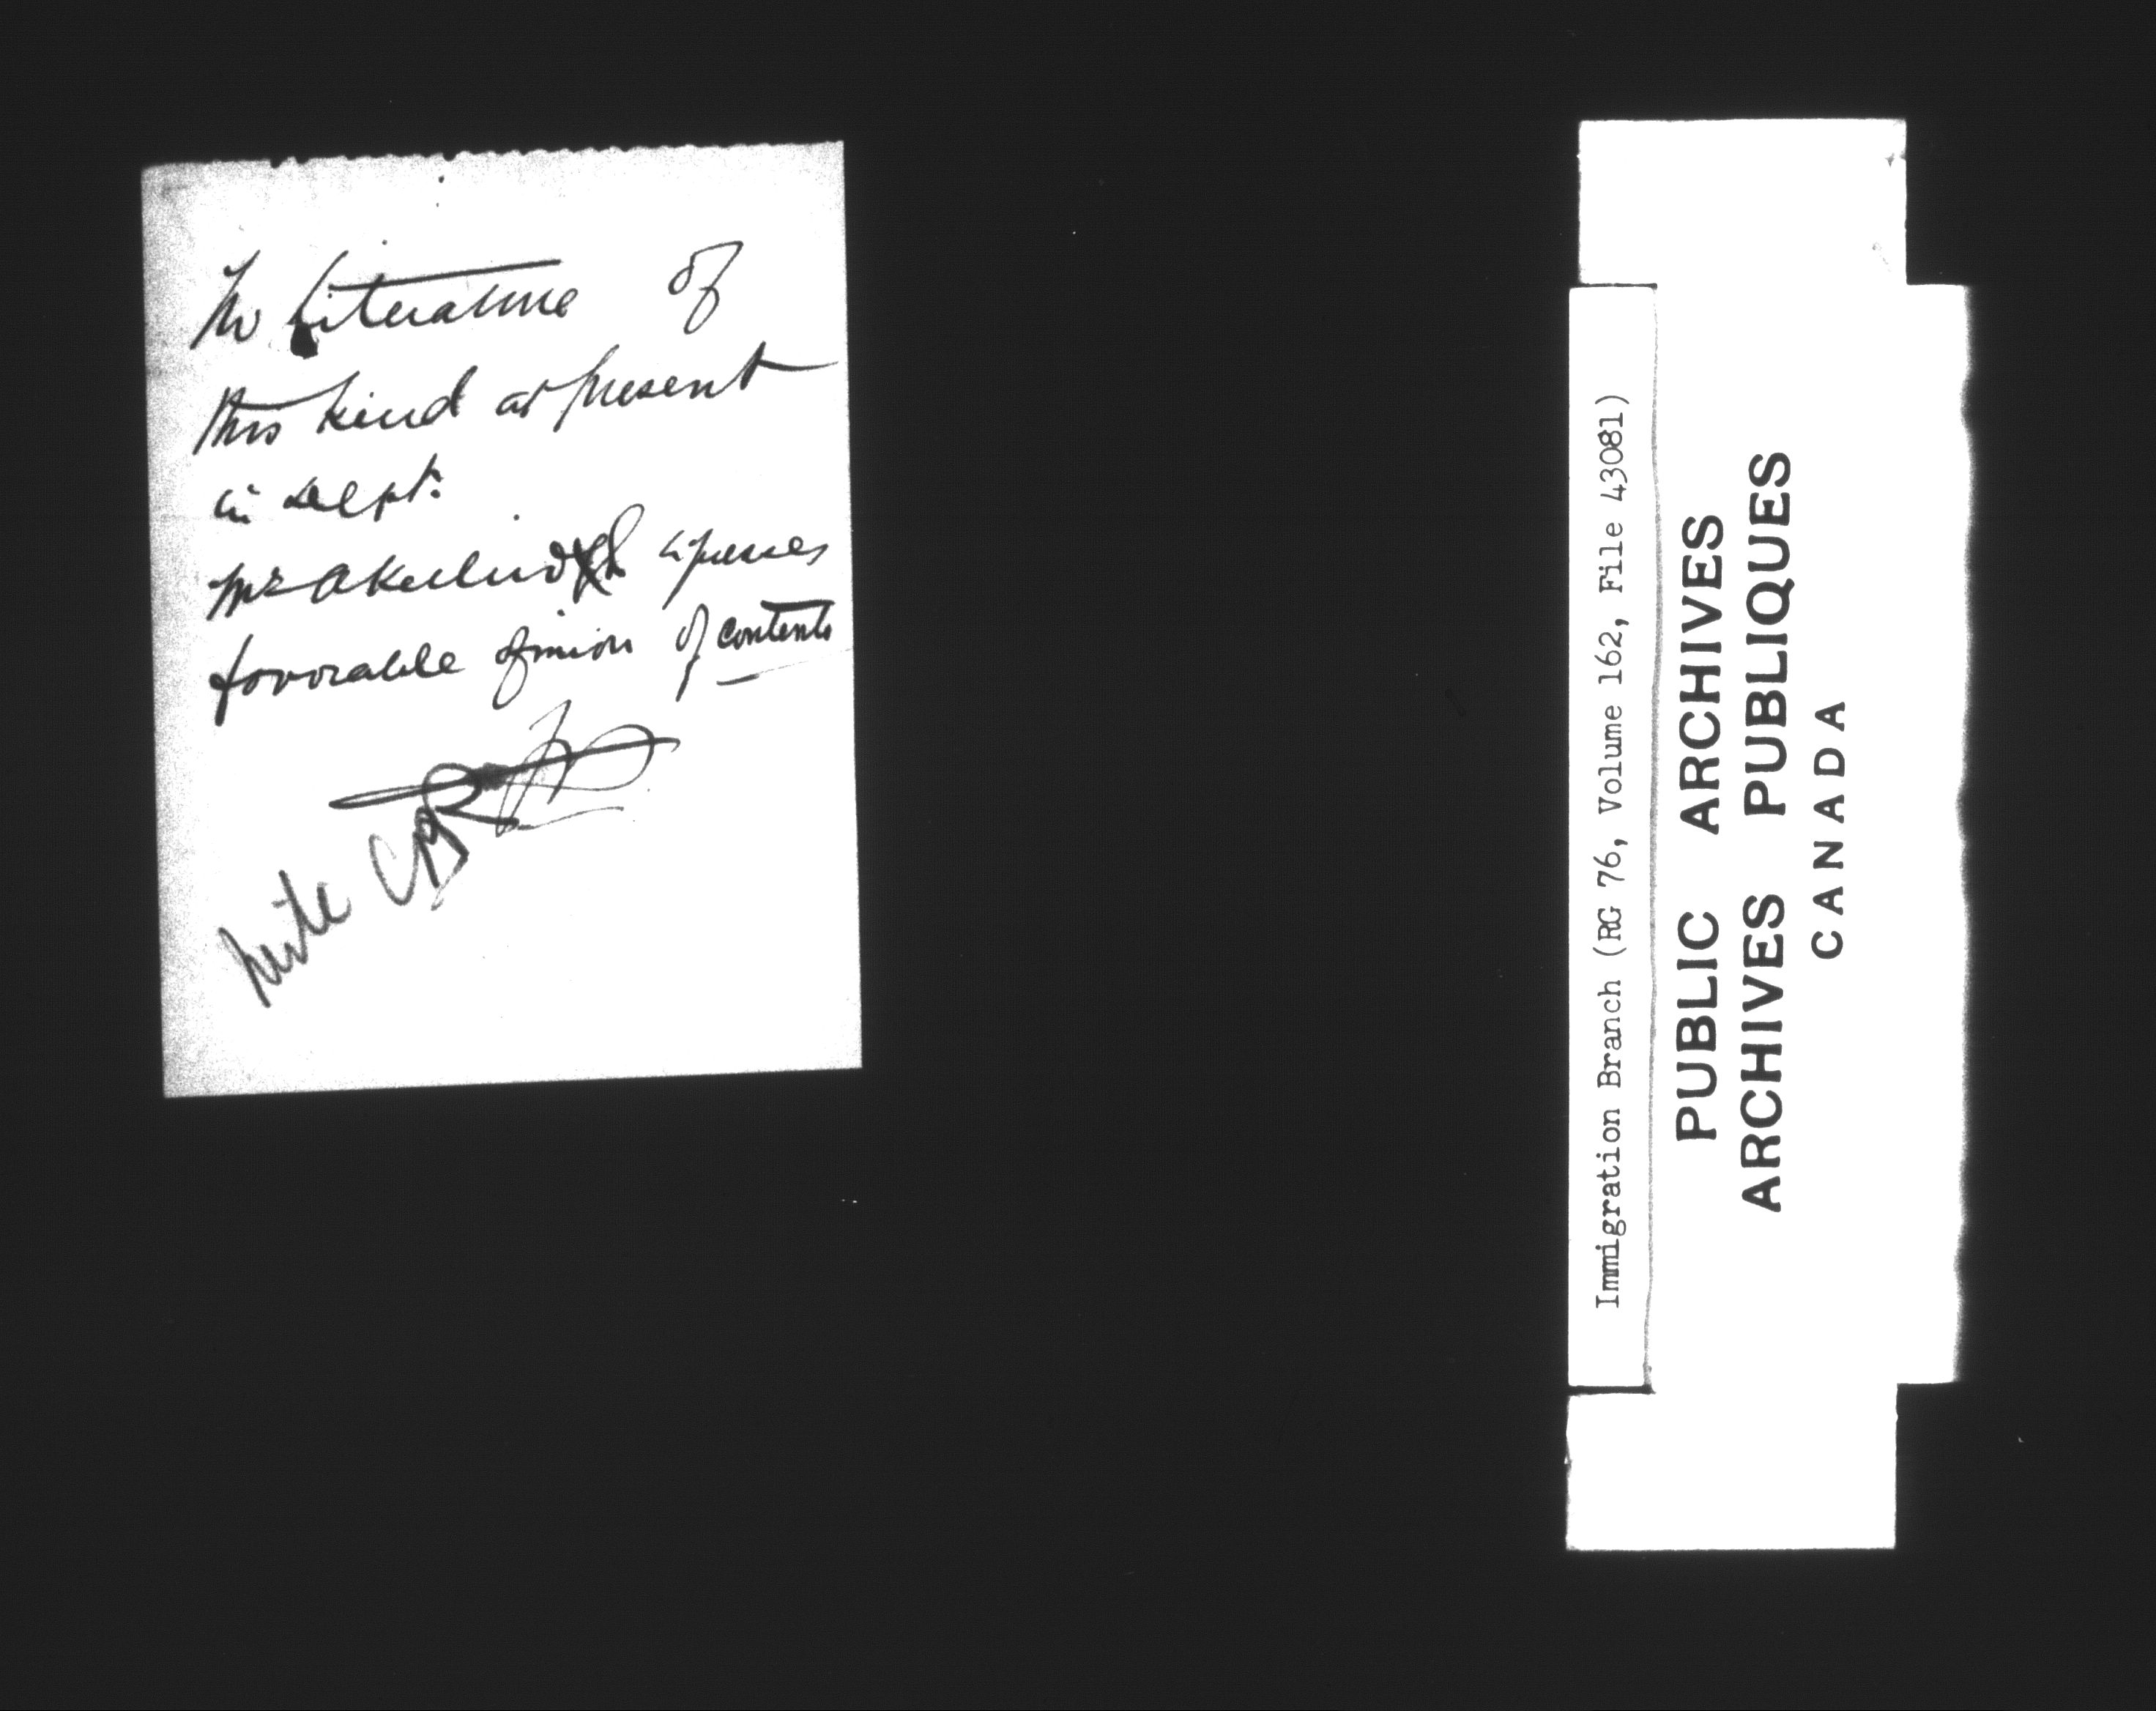 No Literature of
this kind at present
in Dept.
Mr expresses
favorable opinion of contents
write CPR
Immigration Branch (RG 76, Volume 162, File 43081)
PUBLIC ARCHIVES
ARCHIVES PUBLIQUES
CANADA